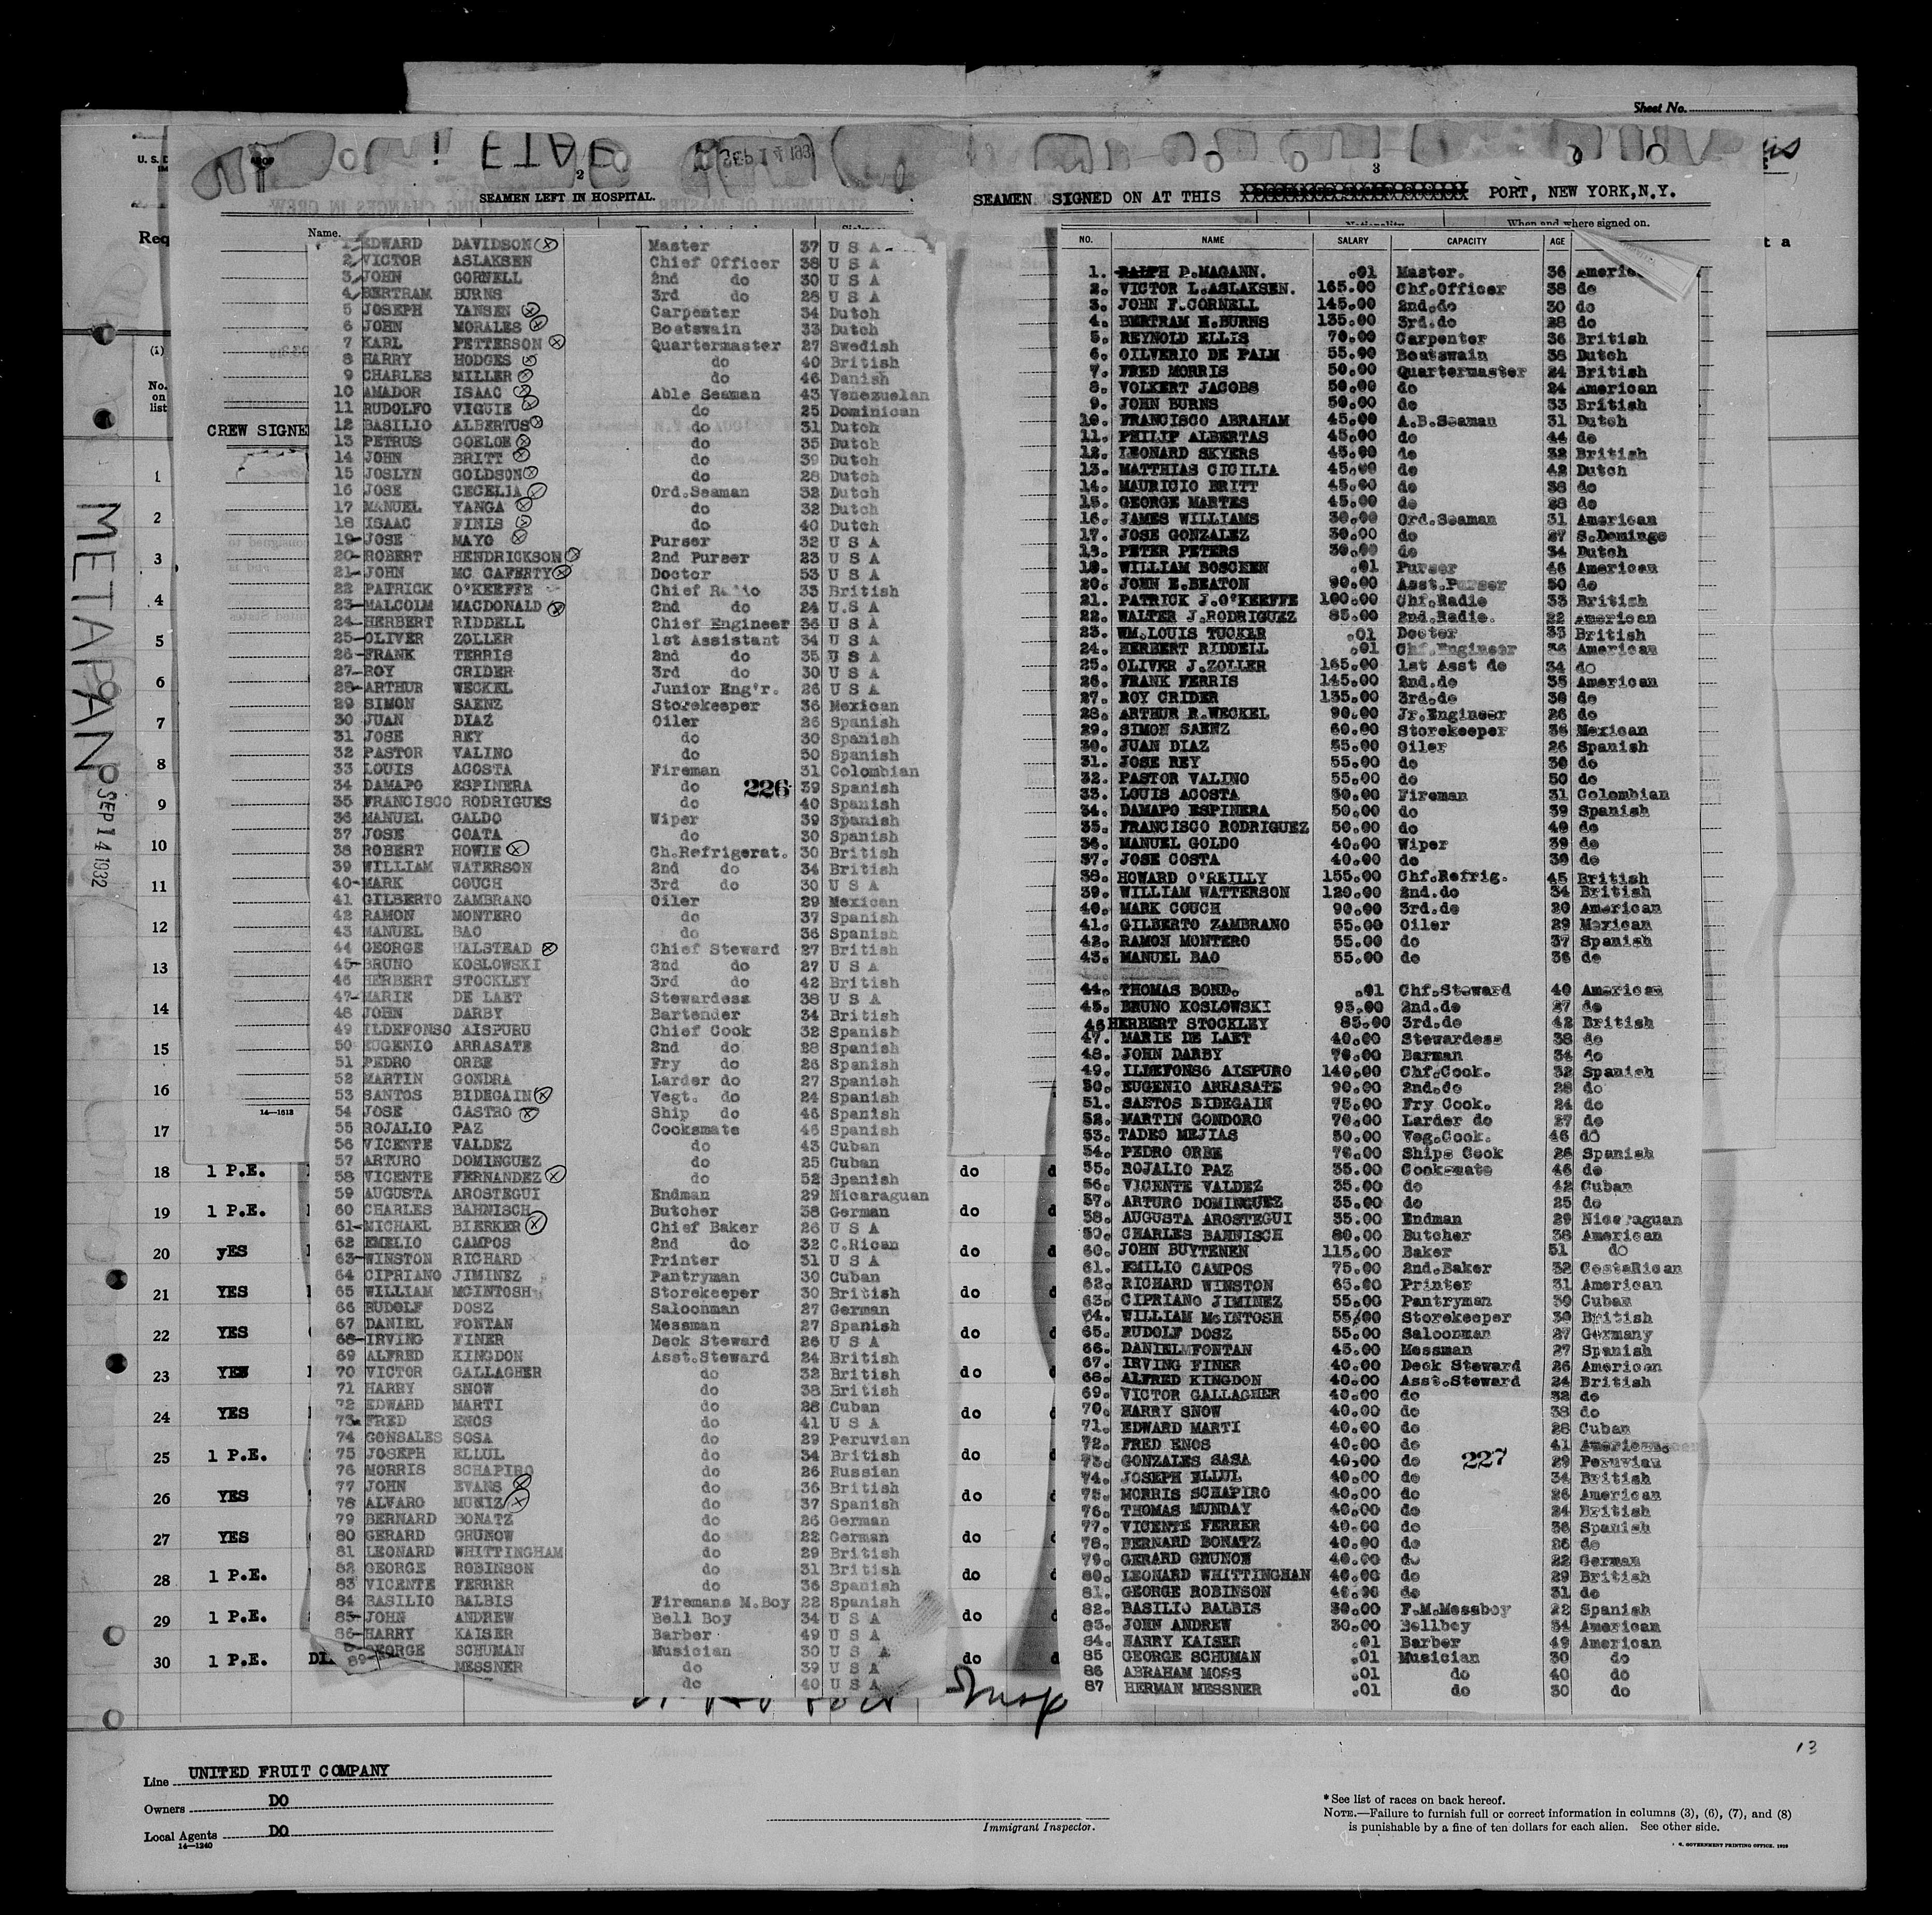 Sheet No.
U. S. D
SEP 14 193
2
SEAMEN LEFT IN HOSPITAL.
Name.
1 EDWARD DAVIDSON Master 37 U S A
2 VICTOR ASLAKSEN Chief Officer 38 U S A
3 JOHN CORNELL 2nd do 30 U S A
4 BERTRAM BURNS 3rd do 28 U S A
5 JOSEPH YANSEN Carpenter 34 Dutch
6 JOHN MORALES Boatswain 33 Dutch
7 KARL PETTERSON Quartermaster 27 Swedish
8 HARRY HODGES do 40 British
9 CHARLES MILLER do 46 Danish
10 AMADOR ISAAC Able Seaman 43 Venezuelan
11 RUDOLFO VIGUIE do 25 Dominican
12 BASILIO ALBERTUS do 31 Dutch
13 PETRUS GOELOE do 35 Dutch
14 JOHN BRITT do 39 Dutch
15 JOSLYN GOLDSON do 28 Dutch
16 JOSE CECELIA Ord.Seaman 32 Dutch
17 MANUEL YANGA do 32 Dutch
18 ISAAC FINIS do 40 Dutch
19 JOSE MAYO Purser 32 U S A
20 ROBERT HENDRICKSON 2nd Purser 23 U S A
21 JOHN MC CAFERTY Doctor 53 U S A
22 PATRICK O'KEEFFE Chief Radio 33 British
23 MALCOLM MACDONALD 2nd do 24 U.S A
24 HERBERT RIDDELL Chief Engineer 36 U S A
25 OLIVER ZOLLER 1st Assistant 34 U S A
26 FRANK TERRIS 2nd do 35 U S A
27 ROY CRIDER 3rd do 30 U S A
28 ARTHUR WECKEL Junior Eng'r. 26 U S A
29 SIMON SAENZ Storekeeper 36 Mexican
30 JUAN DIAZ Oiler 26 Spanish
31 JOSE REY do 30 Spanish
32 PASTOR VALINO do 50 Spanish
33 LOUIS ACOSTA Fireman 31 Colombian
34 DAMAPO ESPINERA do 226 39 Spanish
35 FRANCISCO RODRIGUES do 40 Spanish
36 MANUEL GALDO Wiper 39 Spanish
37 JOSE COATA do 30 Spanish
38 ROBERT HOWIE Ch.Refrigerat. 30 British
39 WILLIAM WATERSON 2nd do 34 British
40 MARK COUCH 3rd do 30 U S A
41 GILBERTO ZAMBRANO Oiler 29 Mexican
42 RAMON MONTERO do 37 Spanish
43 MANUEL BAO do 36 Spanish
44 GEORGE HALSTEAD Chief Steward 27 British
45 BRUNO KOSLOWSKI 2nd do 27 U S A
46 HERBERT STOCKLEY 3rd do 42 British
47 MARIE DE LAET Stewardess 38 U S A
48 JOHN DARBY Bartender 34 British
49 ILDEFONSO AISPURU Chief Cook 32 Spanish
50 EUGENIO ARRASATE 2nd do 28 Spanish
51 PEDRO ORBE Fry do 26 Spanish
52 MARTIN GONDRA Larder do 27 Spanish
53 SANTOS BIDEGAIN Vegt. do 24 Spanish
54 JOSE CASTRO Ship do 46 Spanish
55 ROJALIO PAZ Cooksmate 46 Spanish
56 VICENTE VALDEZ do 43 Cuban
57 ARTURO DOMINGUEZ do 25 Cuban
58 VICENTE FERNANDEZ do 52 Spanish
59 AUGUSTA AROSTEGUI Endman 29 Nicaraguan
60 CHARLES BAHNISCH Butcher 38 German
61 MICHAEL BIERKER Chief Baker 26 U S A
62 EMELIO CAMPOS 2nd do 32 C.Rican
63 WINSTON RICHARD Printer 31 U S A
64 CIPRIANO JIMINEZ Pantryman 30 Cuban
65 WILLIAM MCINTOSH Storekeeper 30 British
66 RUDOLF DOSZ Saloonman 27 German
67 DANIEL FONTAN Messman 27 Spanish
68 IRVING FINER Deck Steward 26 U S A
69 ALFRED KINGDON Asst.Steward 24 British
70 VICTOR GALLAGHER do 32 British
71 HARRY SNOW do 38 British
72 EDWARD MARTI do 28 Cuban
73 FRED ENOS do 41 U S A
74 GONSALES SOSA do 29 Peruvian
75 JOSEPH ELLUL do 34 British
76 MORRIS SCHAPIRO do 26 Russian
77 JOHN EVANS do 36 British
78 ALVARO MUNIZ do 37 Spanish
79 BERNARD BONATZ do 26 German
80 GERARD GRUNOW do 22 German
81 LEONARD WHITTINGHAM do 29 British
82 GEORGE ROBINSON do 31 British
83 VICENTE FERRER do 36 Spanish
84 BASILIO BALBIS Firemans M.Boy 22 Spanish
85 JOHN ANDREW Bell Boy 34 U S A
86 HARRY KAISER Barber 49 U S A
GEORGE SCHUMAN Musician 30 U S A
do 39 U S A
89 MESSNER do 40 U S A
3
SEAMEN SIGNED ON AT THIS PORT, NEW YORK,N.Y.
Nationality When and where signed on.
NO. NAME SALARY CAPACITY AGE
1. RALPH P.MAGANN. .01 Master. 36 Americ
2. VICTOR L.ASLAKSEN. 165.00 Chf.Officer 38 do
3. JOHN F.CORNELL 145.00 2nd.do 30 do
4. BERTRAM H.BURNS 135.00 3rd.do 28 do
5. REYNOLD ELLIS 70.00 Carpenter 36 British
6. OILVERIO DE PALM 55.00 Boatswain 38 Dutch
7. FRED MORRIS 50.00 Quartermaster 24 British
8. VOLKERT JACOBS 50.00 do 24 American
9. JOHN BURNS 50.00 do 33 British
10. FRANCISCO ABRAHAM 45.00 A.B.Seaman 31 Dutch
11. PHILIP ALBERTAS 45.00 do 44 do
12. LEONARD SKYERS 45.00 do 32 British
13. MATTHIAS CICILIA 45.00 do 42 Dutch
14. MAURICIO BRITT 45.00 do 38 do
15. GEORGE MARTES 45.00 do 28 do
16. JAMES WILLIAMS 30.00 Ord.Seaman 31 American
17. JOSE GONZALEZ 30.00 do 27 S.Domingo
18. PETER PETERS 30.00 do 34 Dutch
19. WILLIAM BOSCHEN .01 Purser 46 American
20. JOHN E.BEATON 90.00 Asst.Purser 50 do
21. PATRICK J.O'KEEFFE 100.00 Chf.Radio 33 British
22. WALTER J.RODRIGUEZ 85.00 2nd.Radio. 22 American
23. WM.LOUIS TUCKER .01 Doctor 33 British
24. HERBERT RIDDELL .01 Chf.Engineer 36 American
25. OLIVER J.ZOLLER 165.00 1st Asst do 34 do
26. FRANK FERRIS 145.00 2nd.do 35 American
27. ROY CRIDER 135.00 3rd.do 30 do
28. ARTHUR R.WECKEL 90.00 Jr.Engineer 26 do
29. SIMON SAENZ 60.00 Storekeeper 36 Mexican
30. JUAN DIAZ 55.00 Oiler 26 Spanish
31. JOSE REY 55.00 do 30 do
32. PASTOR VALINO 55.00 do 50 do
33. LOUIS ACOSTA 50.00 Fireman 31 Colombian
34. DAMAPO ESPINERA 50.00 do 39 Spanish
35. FRANCISCO RODRIGUEZ 50.00 do 40 do
36. MANUEL GOLDO 40.00 Wiper 39 do
37. JOSE COSTA 40.00 do 30 do
38. HOWARD O'REILLY 155.00 Chf.Refrig. 45 British
39. WILLIAM WATTERSON 120.00 2nd.do 34 British
40. MARK COUCH 90.00 3rd.do 30 American
41. GILBERTO ZAMBRANO 55.00 Oiler 29 Mexican
42. RAMON MONTERO 55.00 do 37 Spanish
43. MANUEL BAO 55.00 do 36 do
44. THOMAS BOND. .01 Chf.Steward 40 American
45. BRUNO KOSLOWSKI 95.00 2nd.do 27 do
46 HERBERT STOCKLEY 85.00 3rd.do 42 British
47. MARIE DE LAET 40.00 Stewardess 38 do
48. JOHN DARBY 70.00 Barman 34 do
49. ILDEFONSO AISPURO 140.00 Chf.Cook. 32 Spanish
50. EUGENIO ARRASATE 90.00 2nd.do 28 do
51. SAETOS BIDEGAIN 75.00 Fry Cook. 24 do
52. MARTIN GONDORO 70.00 Larder do 27 do
53. TADEO MEJIAS 50.00 Veg.Cook. 46 do
54. PEDRO ORBE 70.00 Ships Cook 26 Spanish
55. ROJALIO PAZ 35.00 Cooksmate 46 do
56. VICENTE VALDEZ 35.00 do 42 Cuban
57. ARTURO DOMINGUEZ 35.00 do 25 do
58. AUGUSTA AROSTEGUI 35.00 Endman 29 Nicaraguan
59. CHARLES BAHNISCH 80.00 Butcher 38 American
60. JOHN BUYTENEN 115.00 Baker 51 do
61. EMILIO CAMPOS 75.00 2nd.Baker 32 CostaRican
62. RICHARD WINSTON 65.00 Printer 31 American
63. CIPRIANO JIMINEZ 55.00 Pantryman 30 Cuban
64. WILLIAM McINTOSH 55/00 Storekeeper 30 British
65. RUDOLF DOSZ 55.00 Saloonman 27 Germany
66. DANIELMFONTAN 45.00 Messman 27 Spanish
67. IRVING FINER 40.00 Deck Steward 26 American
68. ALFRED KINGDON 40.00 Asst.Steward 24 British
69. VICTOR GALLAGHER 40.00 do 32 do
70. HARRY SNOW 40.00 do 38 do
71. EDWARD MARTI 40.00 do 28 Cuban
72. FRED ENOS 40.00 do 41 American
73. GONZALES SASA 40.00 do 227 29 Peruvian
74. JOSEPH ELLUL 40.00 do 34 British
75. MORRIS SCHAPIRO 40.00 do 26 American
76. THOMAS MUNDAY 40.00 do 24 British
77. VICENTE FERRER 40.00 do 36 Spanish
78. BERNARD BONATZ 40.00 do 26 do
79. GERARD GRUNOW 40.00 do 22 German
80. LEONARD WHITTINGHAN 40.00 do 29 British
81. GEORGE ROBINSON 40.00 do 31 do
82. BASILIO BALBIS 30.00 F.M.Messboy 22 Spanish
83. JOHN ANDREW 30.00 Bellboy 34 American
84. HARRY KAISER .01 Barber 49 American
85 GEORGE SCHUMAN .01 Musician 30 do
86 ABRAHAM MOSS .01 do 40 do
87 HERMAN MESSNER .01 do 30 do
Req
(1)
No. on list
CREW SIGNE
METAPAN
SEP 14 1932
1
2
3
4
5
6
7
8
9
10
11
12
13
14
15
16
14—1613
17
18 1 P.E. do
19 1 P.E. do
20 yES do
21 YES do
22 YES do
23 YES do
24 YES do
25 1 P.E. do
26 YES do
27 YES do
28 1 P.E. do
29 1 P.E. do
30 1 P.E. do
Insp
13
Line UNITED FRUIT COMPANY
Owners DO
Local Agents DO
14—1240
Immigrant Inspector.
* See list of races on back hereof.
NOTE.—Failure to furnish full or correct information in columns (3), (6), (7), and (8)
is punishable by a fine of ten dollars for each alien. See other side.
GOVERNMENT PRINTING OFFICE